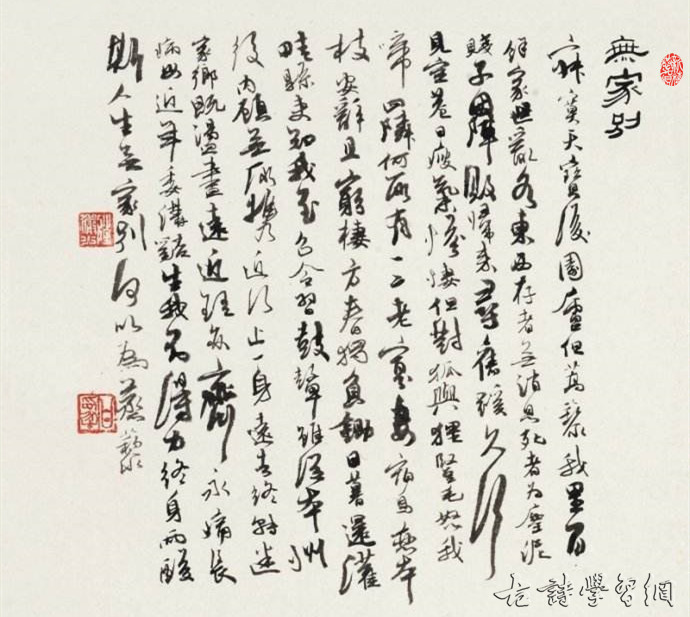 無家別
寂寞天寶後園廬但蒿藜我里百
餘家世亂各東西存者無消息死者為塵泥
賤子因陣敗歸來尋舊蹊久行
見空巷日瘦氣慘悽但對狐與狸豎毛怒我
啼四隣何所有一二老寡妻宿鳥戀本
枝安辭且窮棲方春獨負鋤日暮還灌
畦縣吏知我至召令習鼓鞞雖從本州
役內顧無所攜近行止一身遠去終轉迷
家鄉既盪盡遠近理亦齊永痛長
病母年委溝谿生我不得力終身兩酸
嘶人生無家別何以為蒸藜
詩學習網